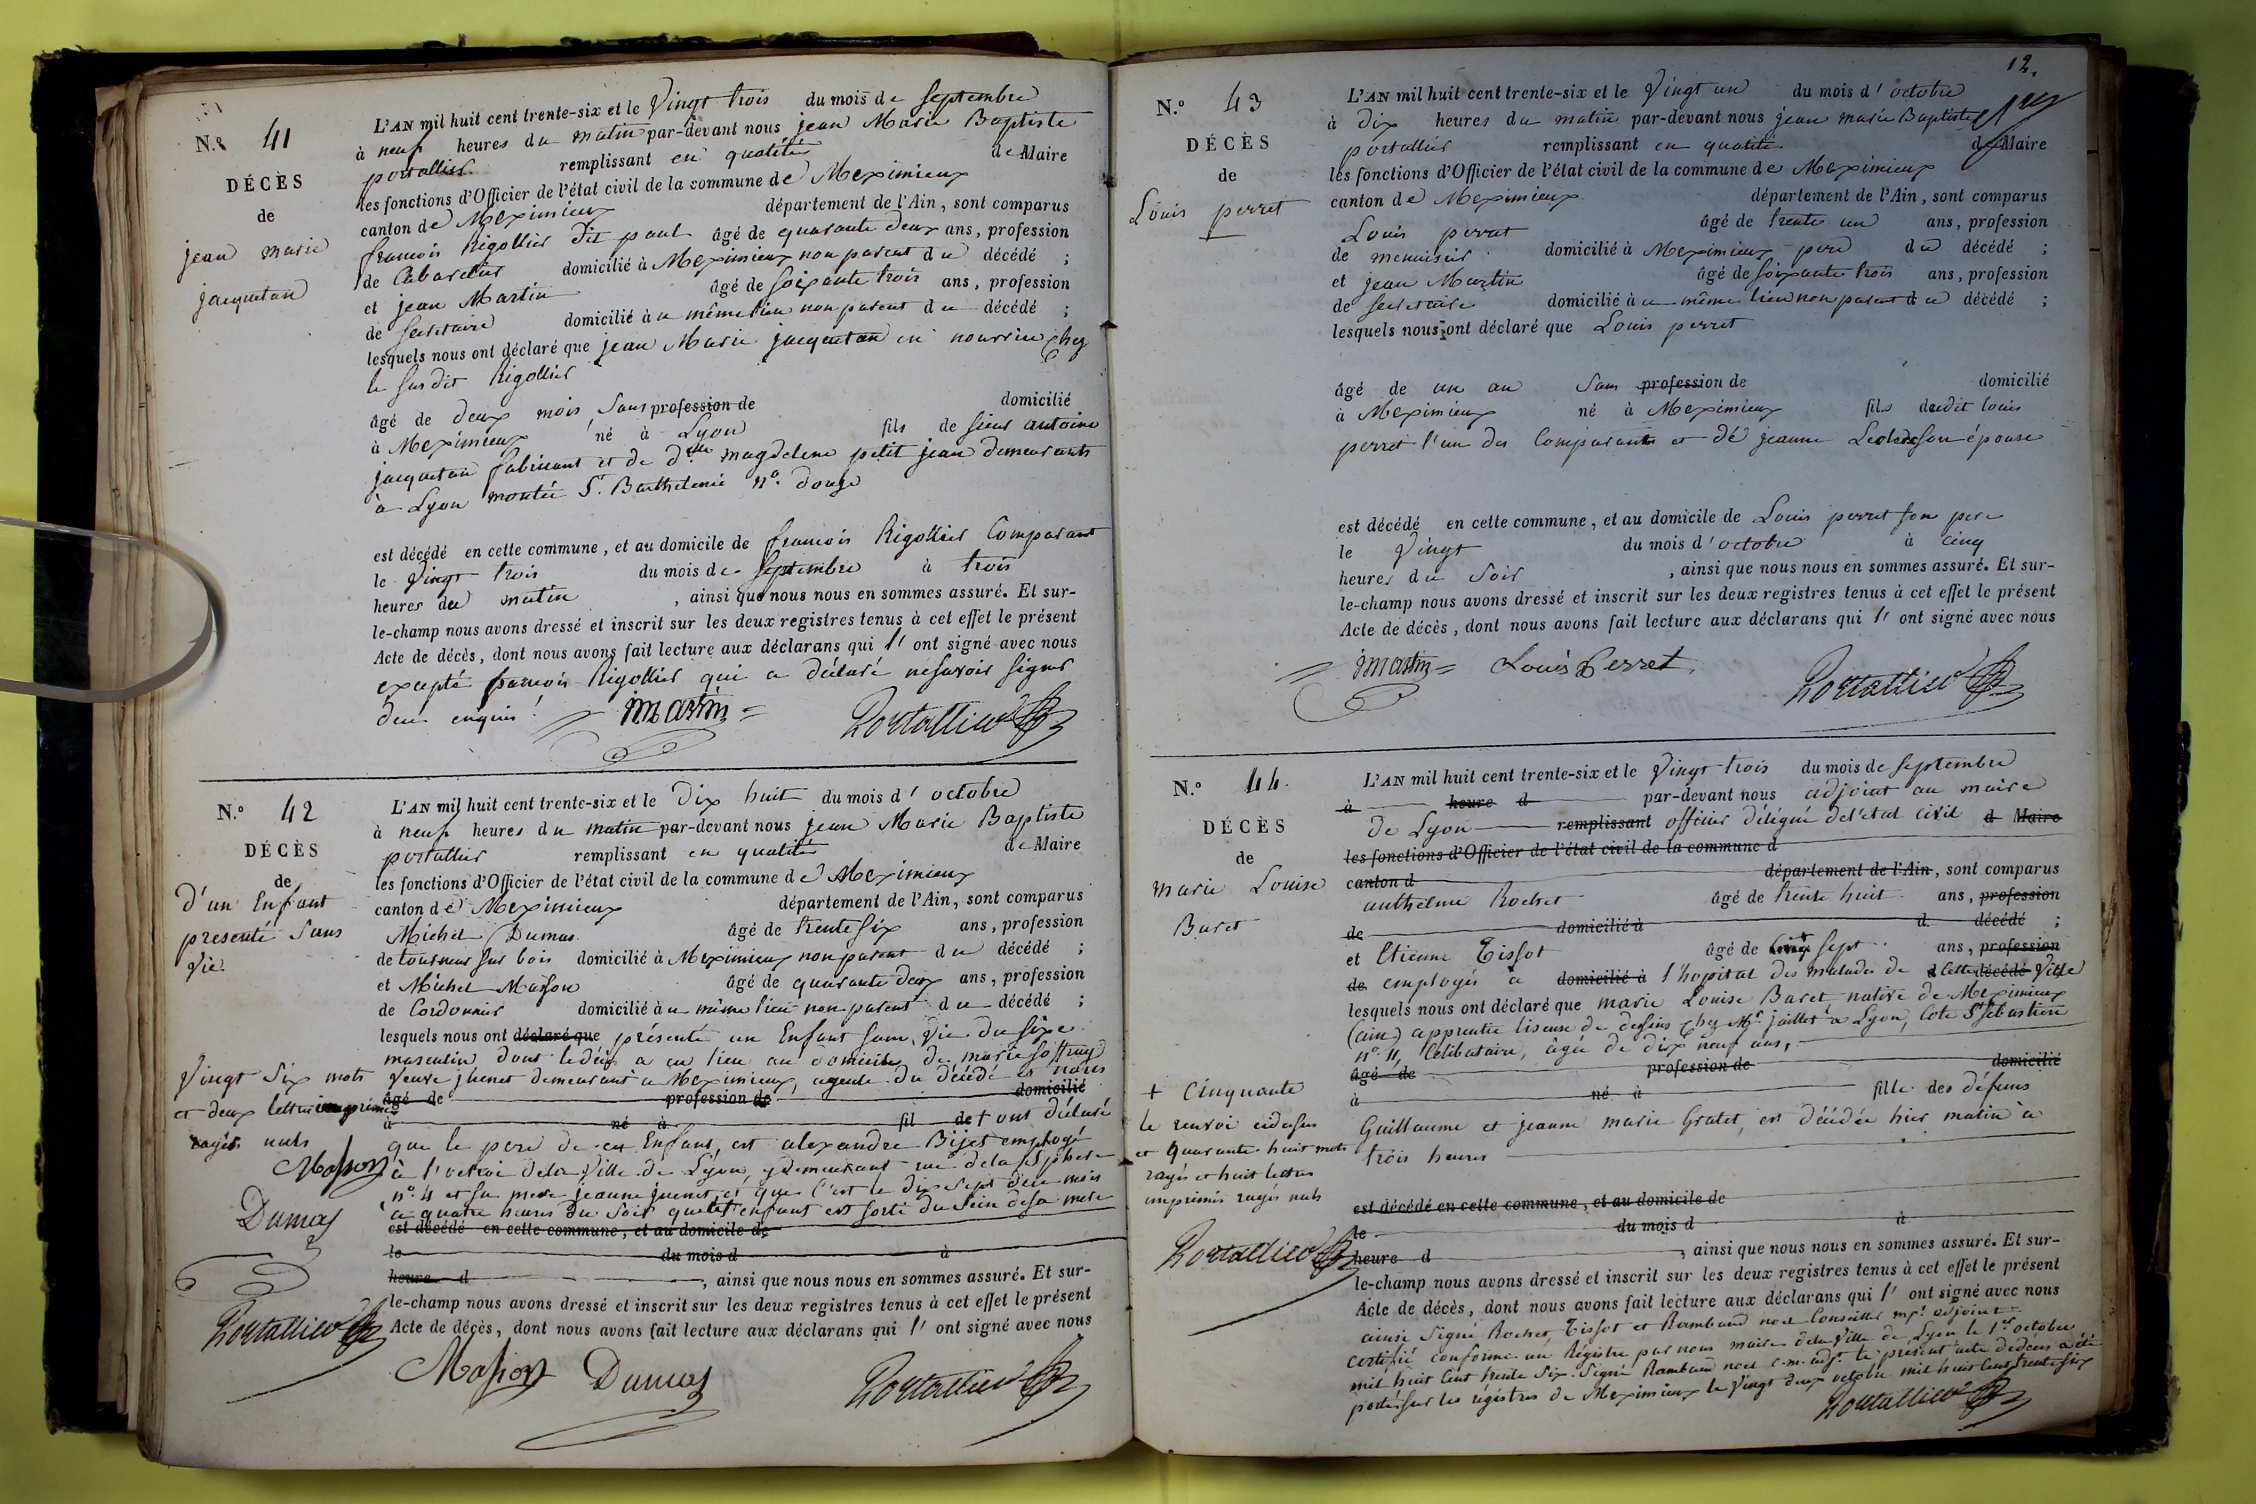 N.º 41
DÉCÈS
de
jean marie
jacquetan
L'AN mil huit cent trente-six et le Vingt trois du mois de Septembre
à neuf heures du matin par-devant nous jean Marie Baptiste
portallier remplissant en qualité de Maire
les fonctions d'Officier de l'état civil de la commune de Meximieux
canton de Meximieux département de l'Ain, sont comparus
francois Rigollier dit paul âgé de quarante deux ans, profession
de Cabaretier domicilié à Meximieux non parent du décédé ;
et jean Martin âgé de soixante trois ans, profession
de Secretaire domicilié au même lieu non parent du décédé ;
lesquels nous ont déclaré que jean Marie jacquetan en nourrice chez
le susdit Rigollier
âgé de deux mois sans profession de domicilié
à Meximieux né à Lyon fils de sieur antoine
jacquetan fabricant et de dlle magdelene petit jean demeurants
à Lyon montée St. Barthelemie nº. douze
est décédé en cette commune, et au domicile de francois Rigollier Comparant
le Vingt trois du mois de Septembre à trois
heures du matin , ainsi que nous nous en sommes assuré. Et sur-
le-champ nous avons dressé et inscrit sur les deux registres tenus à cet effet le présent
Acte de décès, dont nous avons fait lecture aux déclarans qui l' ont signé avec nous
excepté francois Rigollier qui a déclaré ne savoir signer
de ce enquis.
jmartin Portallier
N.º 42
DÉCÈS
de
d'un Enfant
presenté Sans
Vie.
L'AN mil huit cent trente-six et le dix huit du mois d' octobre
à neuf heures du matin par-devant nous jean Marie Baptiste
portallier remplissant en qualité de Maire
les fonctions d'Officier de l'état civil de la commune de Meximieux
canton de Meximieux département de l'Ain, sont comparus
Michel Dumas âgé de trente six ans, profession
de tourneur sur bois domicilié à Meximieux non parent du décédé ;
et Michel Masson âgé de quarante deux ans, profession
de Cordonnier domicilié au même lieu non parent du décédé ;
lesquels nous ont déclaré que présenté un Enfant sans Vie du sexe
masculin dont le décès a eu lieu au domicile de marie
Veuve jhenet demeurant à Meximieux, ayeule du décédé et nous
âgé de profession de domicilié
à né à fil de + ont déclaré
que le pere de cet Enfant, est alexandre Bijet employé
à l'octroi de la Ville de Lyon, y demeurant rue de la Sphere
nº. 4 et sa mere jeanne jhenet, et que c'est le dix sept de ce mois
à quatre heures du soir que cet enfant est sorti du Sein de sa mere
est décédé en cette commune, et au domicile de
le du mois d à
heure d , ainsi que nous nous en sommes assuré. Et sur-
le-champ nous avons dressé et inscrit sur les deux registres tenus à cet effet le présent
Acte de décès, dont nous avons fait lecture aux déclarans qui l' ont signé avec nous
Masson Dumas Portallier
Vingt Six mots
et deux lettres imprimés
rayés nuls
Masson
Dumas
Portallier
12.
N.º 43
DÉCÈS
de
Louis perret
L'AN mil huit cent trente-six et le Vingt un du mois d' octobre
à dix heures du matin par-devant nous jean marie Baptiste
portallier remplissant en qualité de Maire
les fonctions d'Officier de l'état civil de la commune de Meximieux
canton de Meximieux département de l'Ain, sont comparus
Louis perret âgé de trente un ans, profession
de menuisier domicilié à Meximieux pere du décédé ;
et jean Martin âgé de soixante trois ans, profession
de Secretaire domicilié au même lieu non parent du décédé ;
lesquels nous ont déclaré que Louis perret
âgé de un an Sans profession de domicilié
à Meximieux né à Meximieux fils dudit louis
perret l'un des Comparants et de jeanne son épouse
est décédé en cette commune, et au domicile de Louis perret son pere
le Vingt du mois d' octobre à cinq
heures du Soir , ainsi que nous nous en sommes assuré. Et sur-
le-champ nous avons dressé et inscrit sur les deux registres tenus à cet effet le présent
Acte de décès, dont nous avons fait lecture aux déclarans qui l' ont signé avec nous
jmartin Louis Perret Portallier
N.º 44.
DÉCÈS
de
marie Louise
Baret
L'AN mil huit cent trente-six et le Vingt trois du mois de Septembre
à heure d par-devant nous adjoint au maire
de Lyon remplissant officier délégué de l'etat civil d Maire
les fonctions d'Officier de l'état civil de la commune d
canton d département de l'Ain, sont comparus
anthelme Rochet âgé de trente huit ans, profession
de domicilié à d décédé ;
et Etienne Tissot âgé de sept ans, profession
de employés à domicilié à l'hopital des malades de d cette décédé Ville
lesquels nous ont déclaré que marie Louise Baret native de Meximieux
(ain) apprentie liseuse de dessins chez Mr. jaillet à Lyon, Cote St sebastien
nº 11, Célibataire, âgée de dix neuf ans,
âgé de profession de domicilié
à né à fille des défunts
Guillaume et jeanne marie Gratet, est décédée hier matin à
trois heures
est décédé en cette commune, et au domicile de
le du mois d à
heure d , ainsi que nous nous en sommes assuré. Et sur-
le-champ nous avons dressé et inscrit sur les deux registres tenus à cet effet le présent
Acte de décès, dont nous avons fait lecture aux déclarans qui l' ont signé avec nous
ainsi Signé Rochet, Tissot et Rambaud noel Conseiller mpl. adjoint
certifié conforme au Régistre par nous maire de la Ville de Lyon le 1er octobre
mil huit Cent trente Six. Signé Rambaud noel c.m. adjt. le présent acte de décès a été
porté sur les régistres de Meximieux le Vingt deux octobre mil huit cent trente six
Portallier
+ Cinquante
le renvoi ci dessus
et quarante huit mots
rayés et huit lettres
imprimés rayés nuls
Portallier